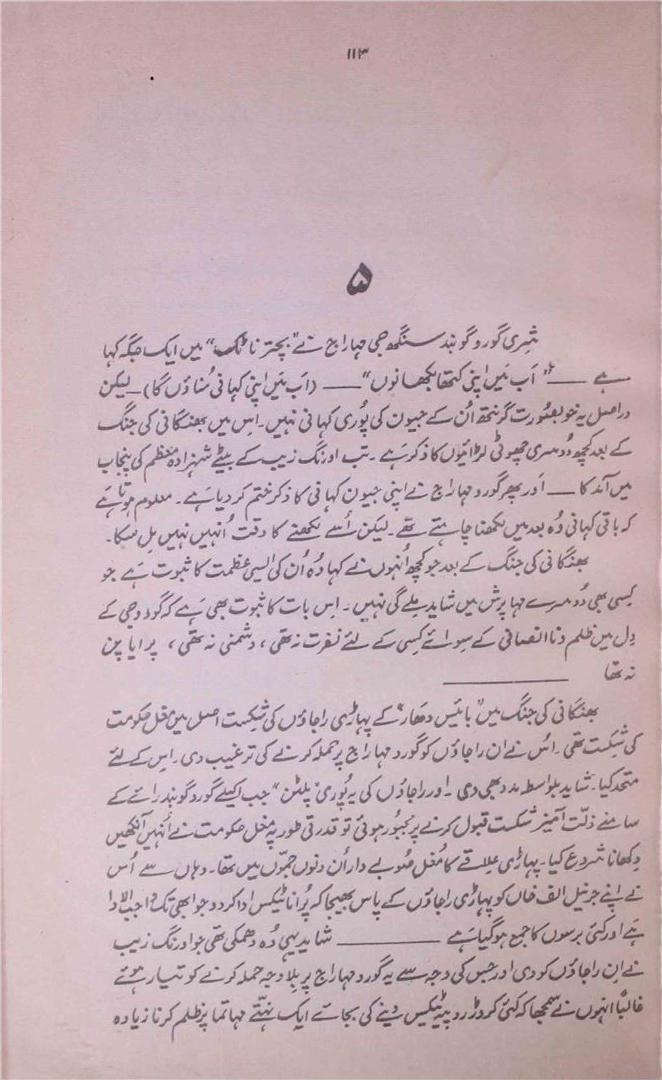 ۱۱۳
۵
شری گورو گوبند سنگھ جی مہاراج نے ”بچتر ناٹک“ میں ایک جگہ کہا
ہے ــــ ”اَب مَیں اپنی کتھا بکھانوں“ ــــ (اَب مَیں اپنی کہانی سُناؤں گا) ــ لیکن
دراصل یہ خوبصورت گرنتھ اُن کے جیون کی پُوری کہانی نہیں۔ اس میں بھنگانی کی جنگ
کے بعد کچھ دُوسری چھوٹی لڑائیوں کا ذکر ہے۔ تب اورنگ زیب کے بیٹے شہزادہ معظم کی پنجاب
میں آمد کا ــــ اَور پھر گورو مہاراج نے اپنی جیون کہانی کا ذکر ختم کر دیا ہے۔ معلوم ہوتا ہے
کہ باقی کہانی وُہ بعد میں لکھنا چاہتے تھے۔ لیکن اُسے لکھنے کا وقت اُنہیں نہیں مِل سکا۔
بھنگانی کی جنگ کے بعد جو کچھ اُنہوں نے کہا وُہ اُن کی ایسی عظمت کا ثبوت ہے جو
کِسی بھی دُوسرے مہاپرش میں شاید مِلے گی نہیں۔ اس بات کا ثبوت بھی ہے کہ گورو جی کے
دِل میں ظلم و ناانصافی کے سوائے کِسی کے لئے نفرت نہ تھی، دشمنی نہ تھی، پرایا پن
نہ تھا
بھنگانی کی جنگ میں ”بائیس دھار“ کے پہاڑی راجاؤں کی شکست اصل میں مغل حکومت
کی شکست تھی۔ اُس نے ان راجاؤں کو گورو مہاراج پر حملہ کرنے کی ترغیب دی۔ اِس کے لئے
متحد کیا۔ شاید بلواسطہ مدد بھی دی۔ اور راجاؤں کی یہ پُوری ”پلٹن“ جب اکیلے گورو گوبند رائے کے
سامنے ذلّت آمیز شکست قبول کرنے پر مجبور ہوئی تو قدرتی طور پہ مغل حکومت نے اُنہیں آنکھیں
دِکھانا شروع کیا۔ پہاڑی علاقے کا مُغل صُوبے دار اُن دنوں جمّوں میں تھا۔ وہاں سے اُس
نے اپنے جرنیل الف خاں کو پہاڑی راجاؤں کے پاس بھیجا کہ پُرانا ٹیکس ادا کر دو جو ابھی تک واجب الادا
ہے اور کئی برسوں کا جمع ہو گیا ہے ــــــــ شاید یہی وُہ دھمکی تھی جو اورنگ زیب
نے اِن راجاؤں کو دی اور جِس کی وجہ سے یہ گورو مہاراج پر بِلاوجہ حملہ کرنے کو تیار ہوئے
غالباً انہوں نے سمجھا کہ کئی کروڑ روپیہ ٹیکس دینے کی بجائے ایک نہتّے مہاتما پر ظلم کرنا زیادہ